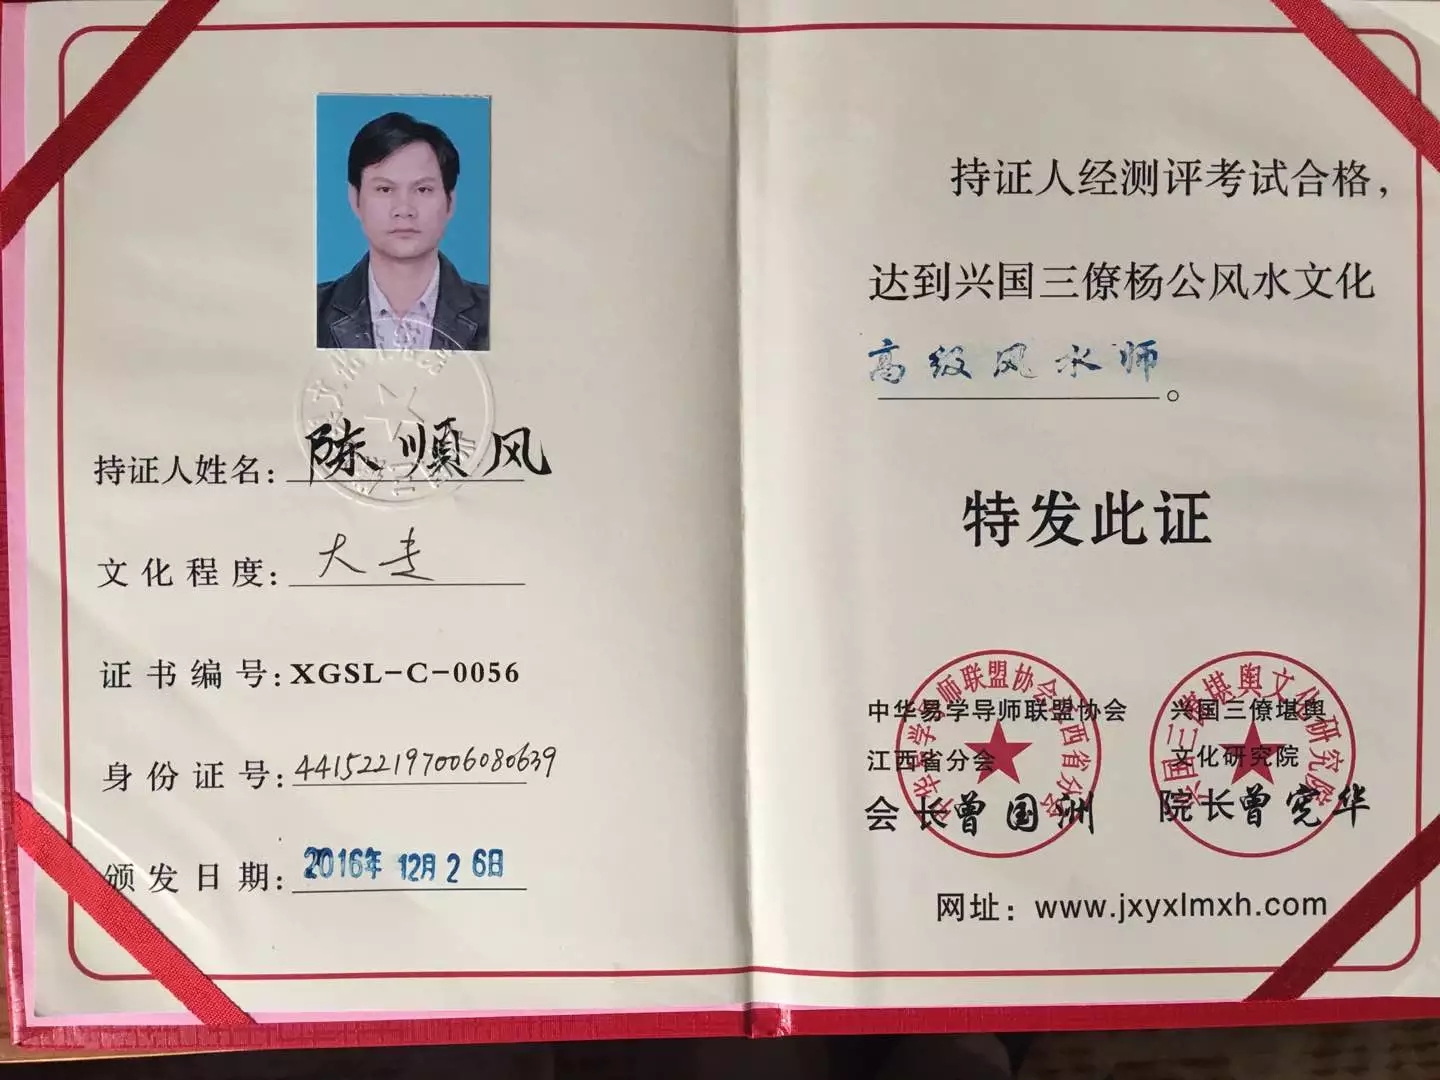 持证人姓名：陈顺风
文化程度：大专
证书编号：XGSL-C-0056
身份证号：441522197006080639
颁发日期：2016年12月26日
持证人经测评考试合格，
达到兴国三僚杨公风水文化
高级风水师。
特发此证
中华易学导师联盟协会
江西省分会
会长曾国洲
兴国三僚堪舆
文化研究院
院长曾宪华
中华易学导师联盟协会江西省分会
兴国三僚堪舆文化研究院
网址：www.jxyxlmxh.com